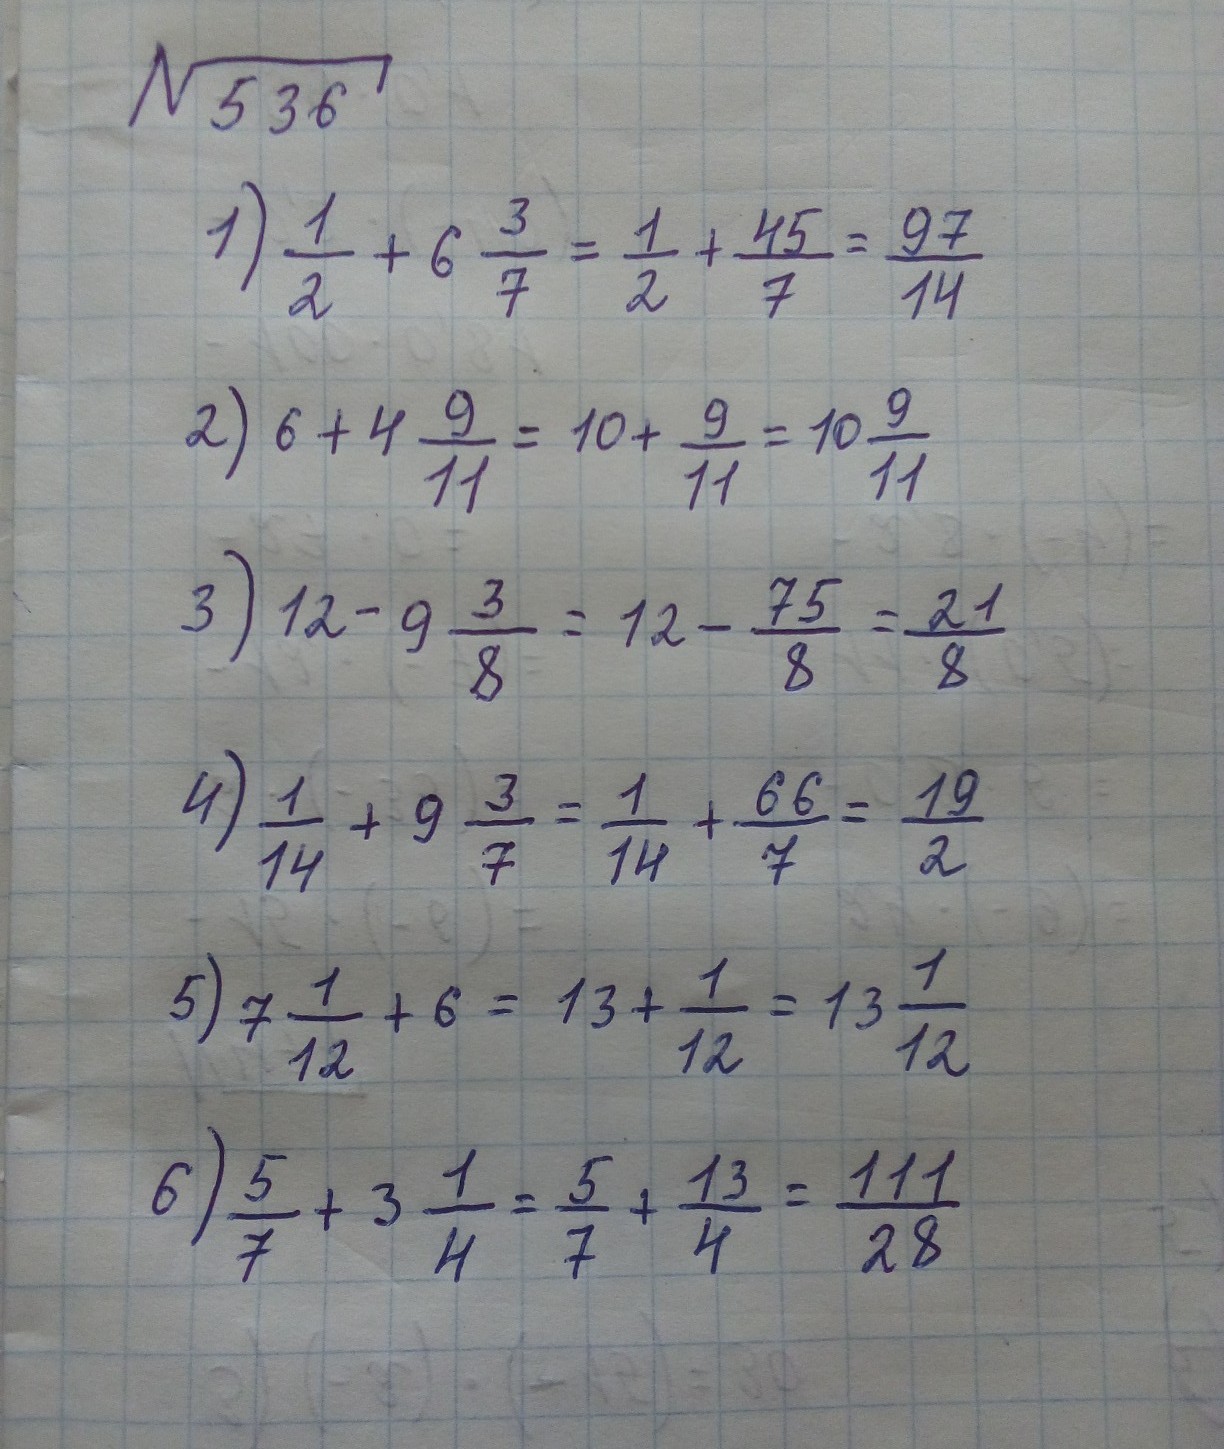 № 536
1) 1/2 + 6 3/7 = 1/2 + 45/7 = 97/14
2) 6 + 4 9/11 = 10 + 9/11 = 10 9/11
3) 12 - 9 3/8 = 12 - 75/8 = 21/8
4) 1/14 + 9 3/7 = 1/14 + 66/7 = 19/2
5) 7 1/12 + 6 = 13 + 1/12 = 13 1/12
6) 5/7 + 3 1/4 = 5/7 + 13/4 = 111/28